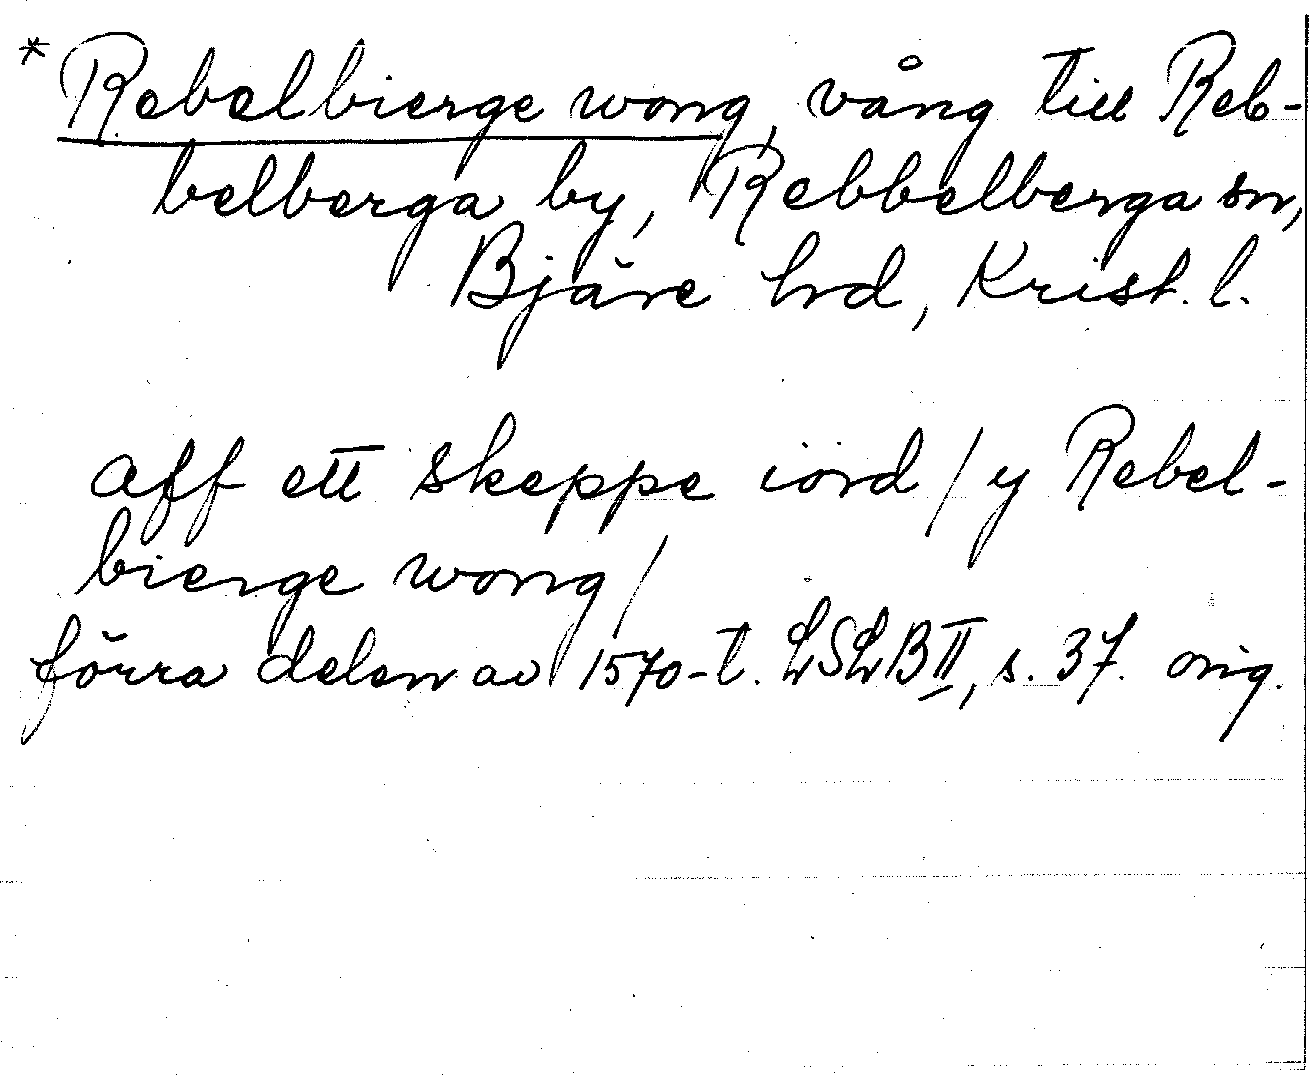 * Rebelbierge wong, vång till Reb-
belberga by, Rebbelberga sn,
Bjäre hd, Krist. l.
aff ett skeppe iord / y Rebel-
bierge wong /
förra delen av 1570-t. LSLB II, s. 37. orig.